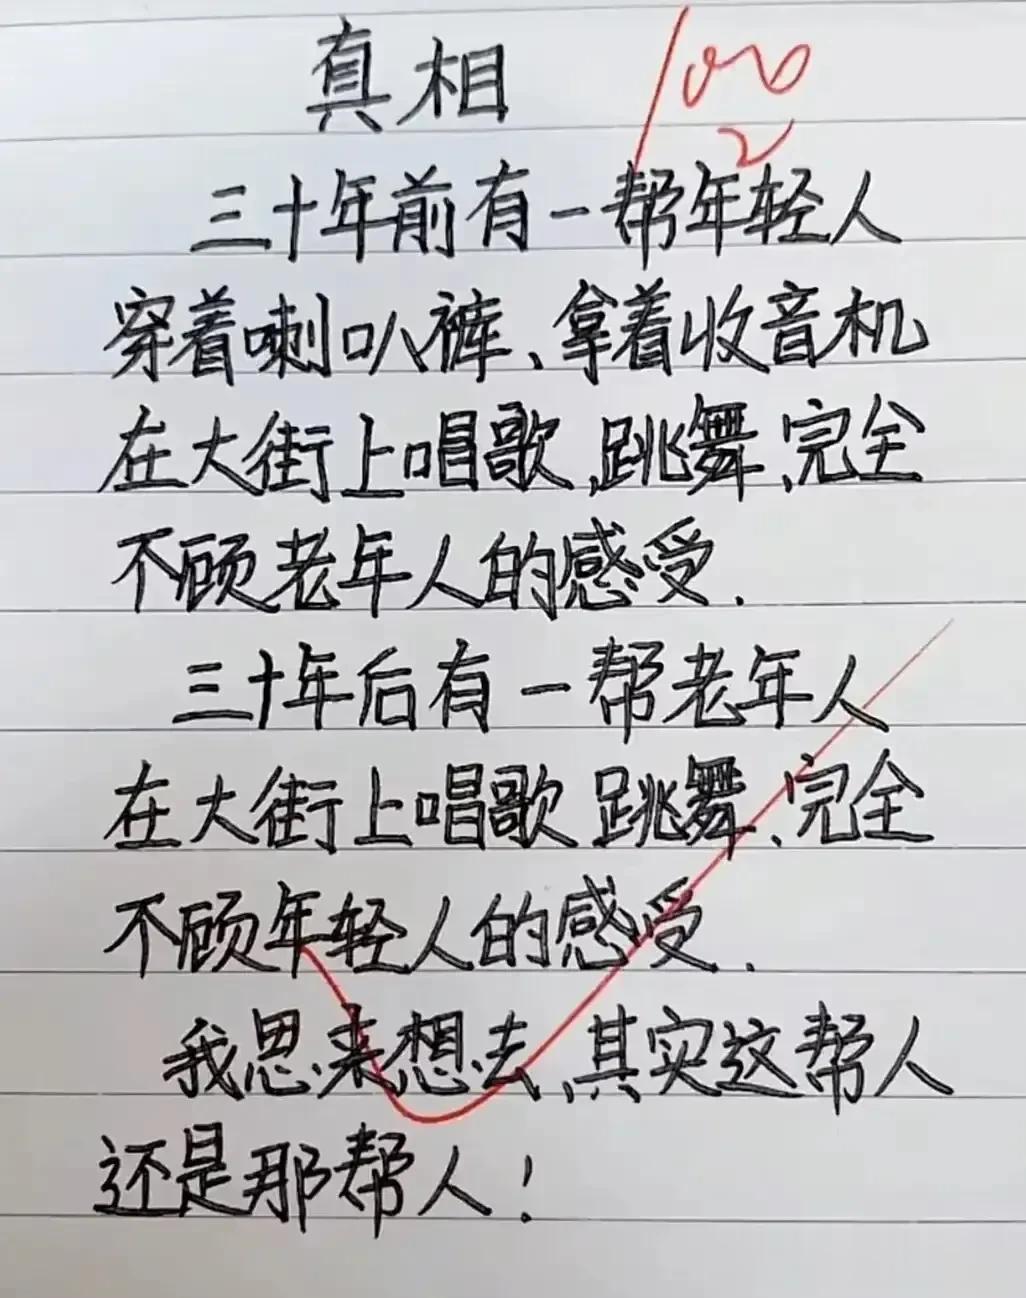 真相
100
三十年前有一帮年轻人
穿着喇叭裤、拿着收音机
在大街上唱歌、跳舞、完全
不顾老年人的感受.
三十年后有一帮老年人
在大街上唱歌 跳舞、完全
不顾年轻人的感受.
我思来想去、其实这帮人
还是那帮人!